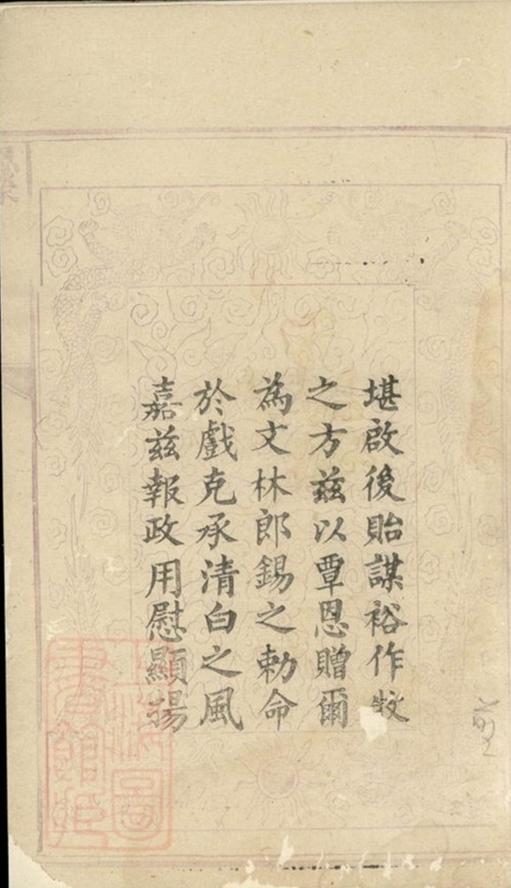 堪啟後貽謀裕作牧
之方茲以覃恩贈爾
為文林郎錫之勅命
於戲克承清白之風
嘉茲報政用慰顯揚